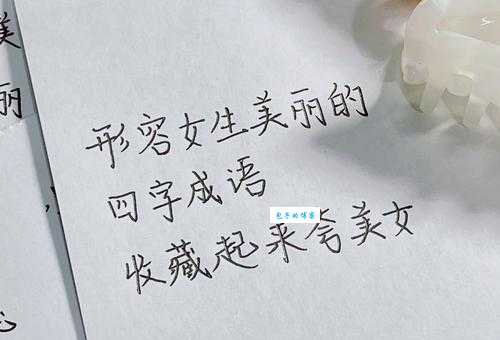 美
丽
形容女生美丽的
四字成语
包子的博客
收藏起来夸美女